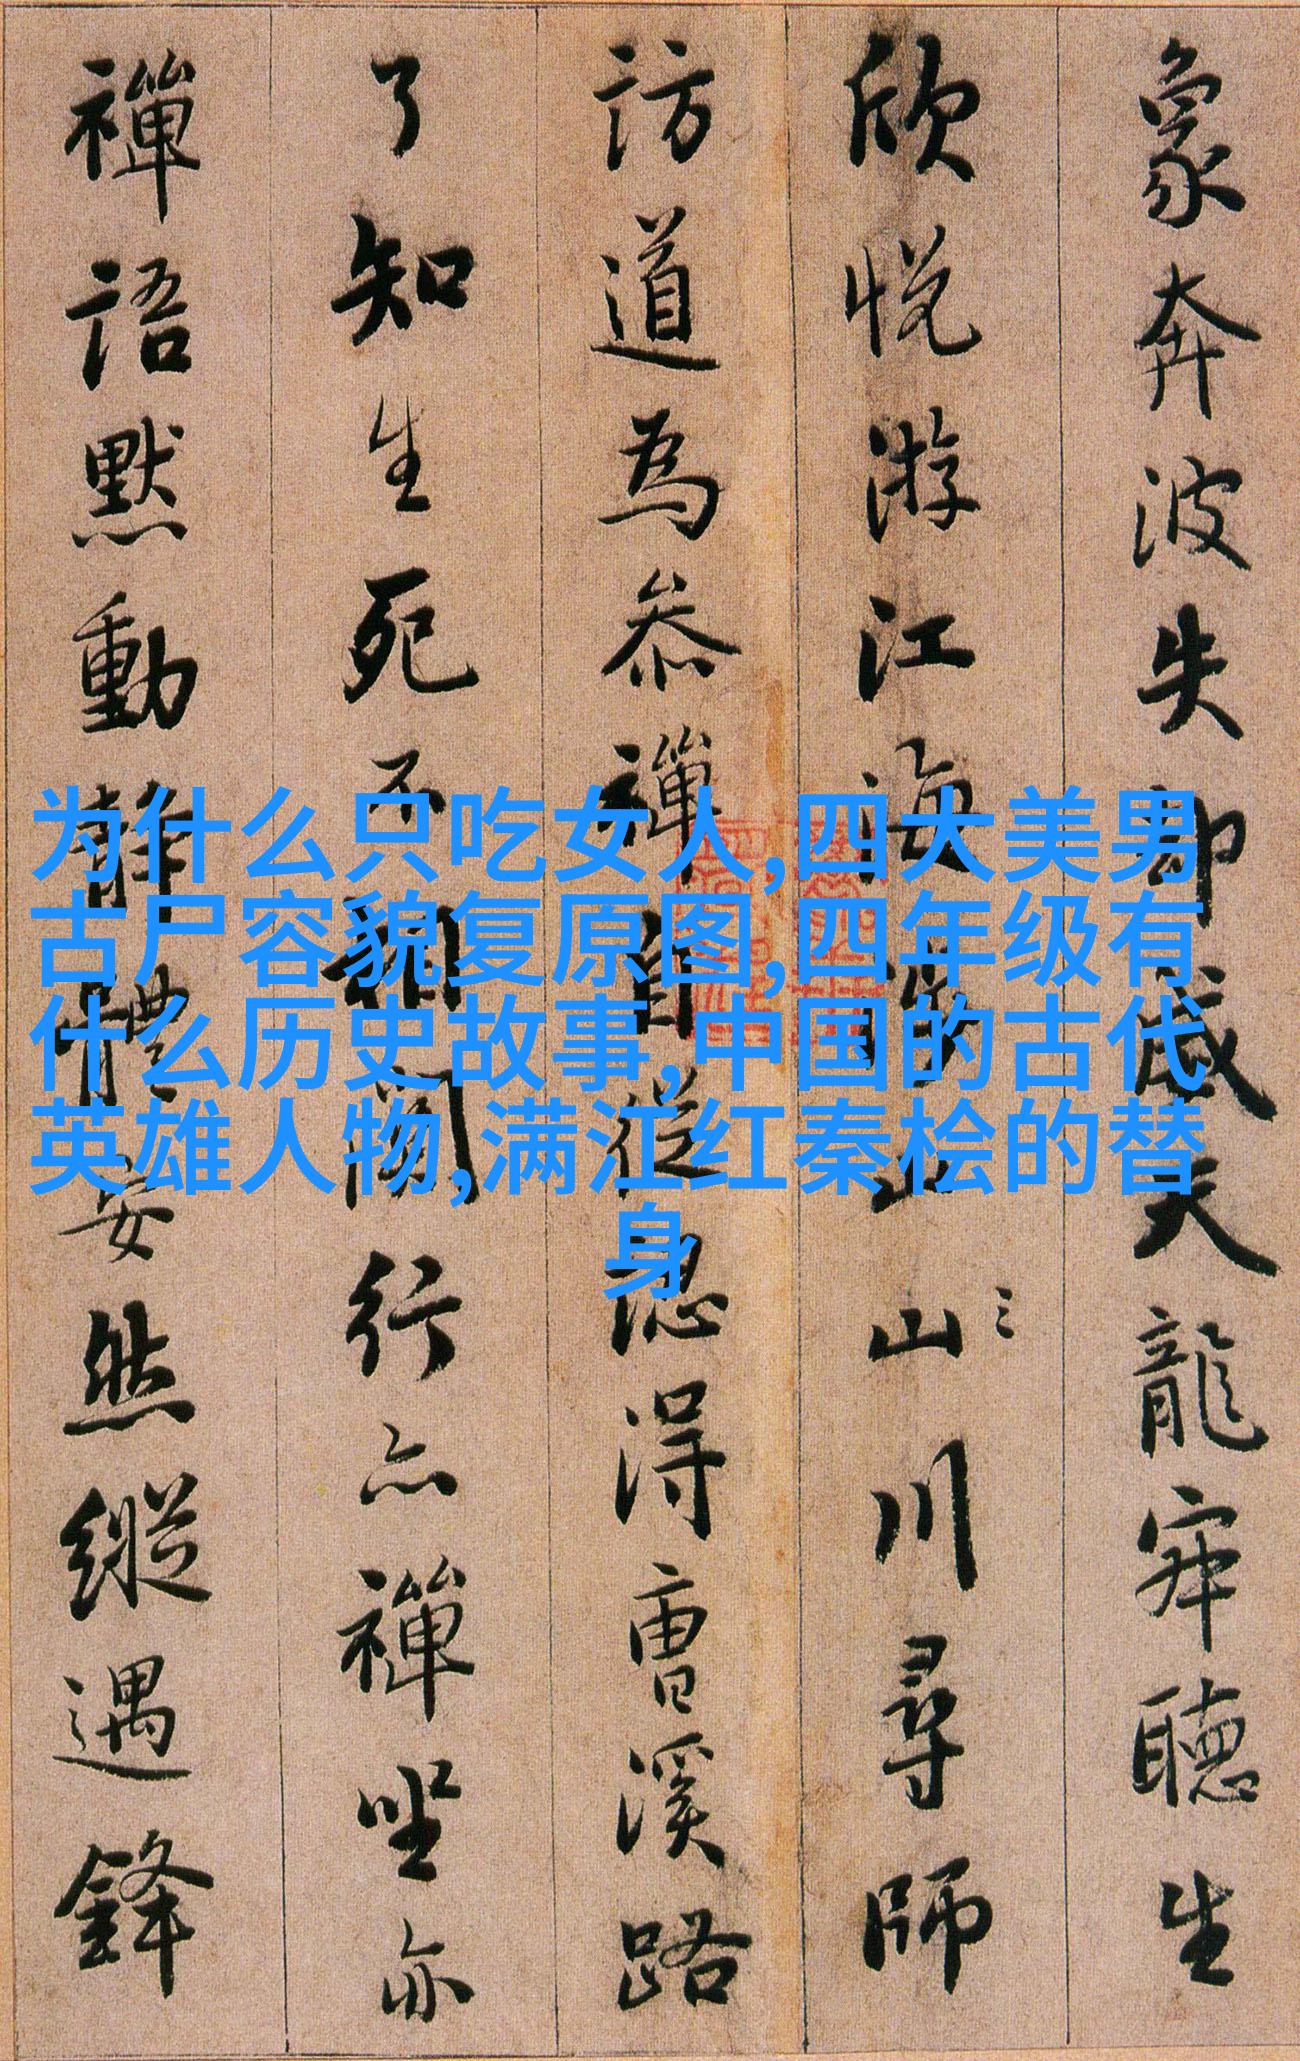 象奔波失却威天龍寂聽生
欣悅游江海山山川尋師
訪道為叅禪自從認得曹溪路
了知生死不相關行亦禪坐亦
禪語默動靜體安然縱遇鋒
为什么只吃女人,四大美男
古尸容貌复原图,四年级有
什么历史故事,中国的古代
英雄人物,满江红秦桧的替
身